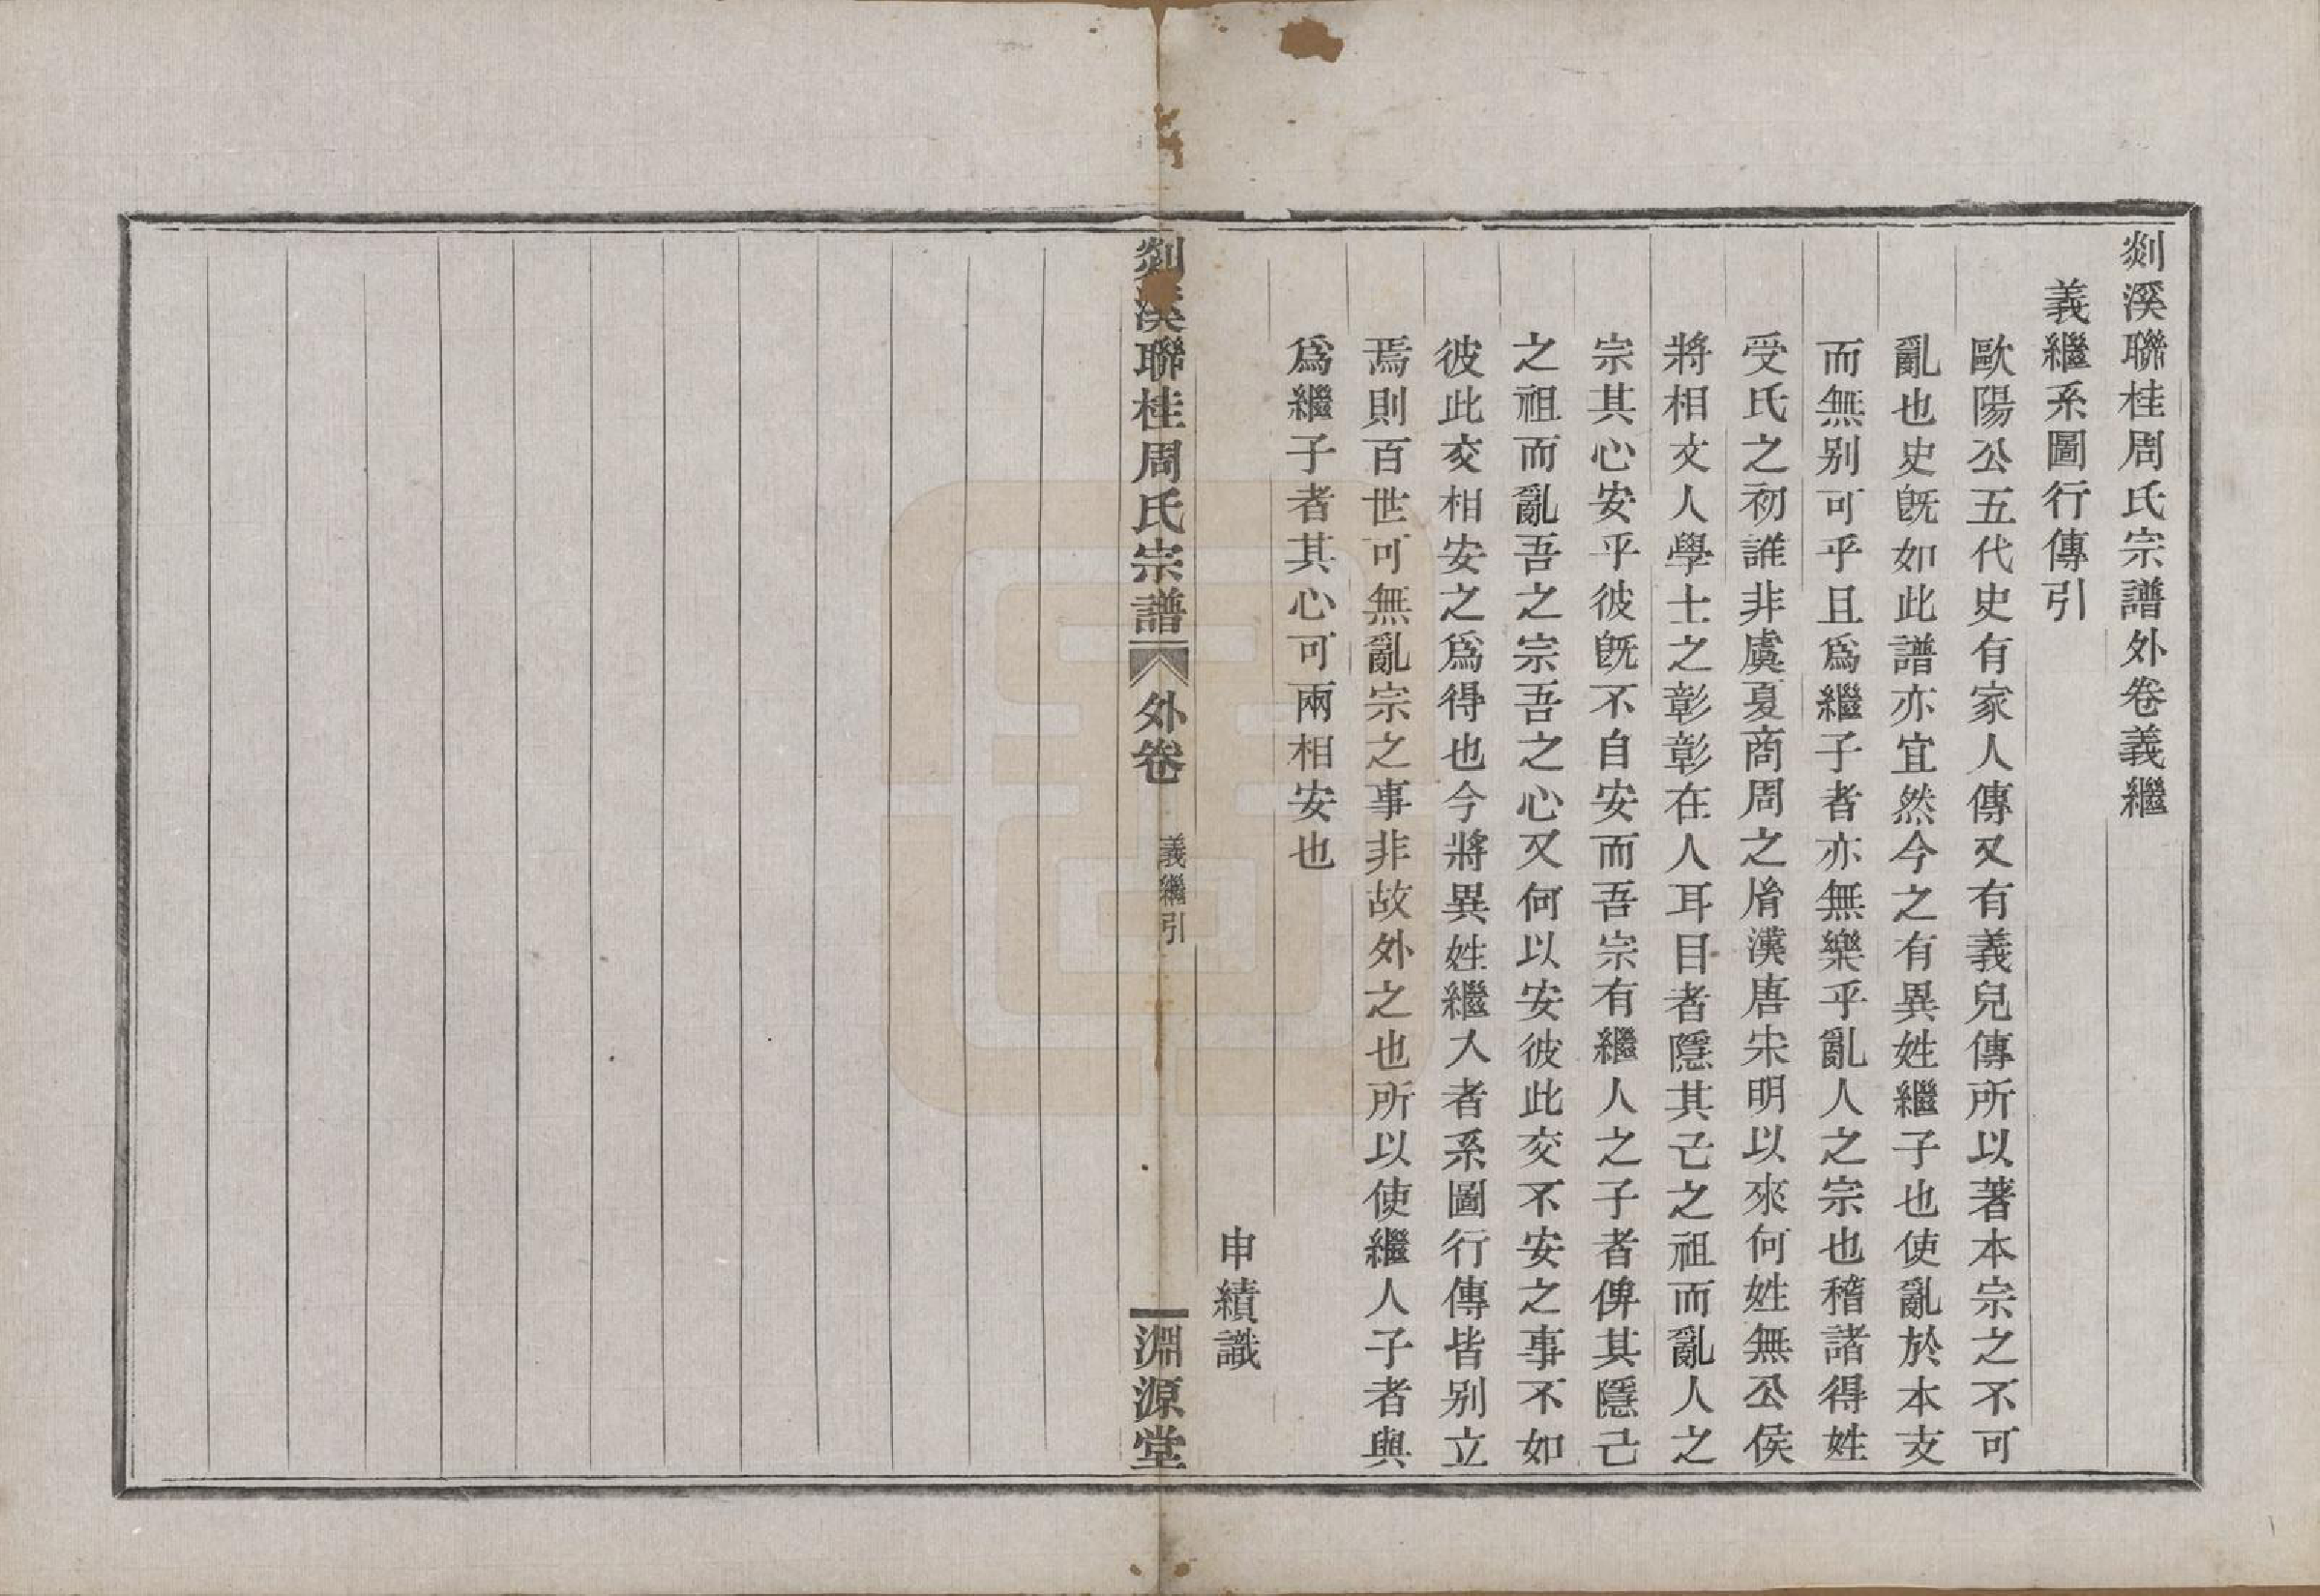 剡溪聯桂周氏宗譜外卷義繼
義繼系圖行傳引
歐陽公五代史有家人傳又有義兒傳所以著本宗之不可
亂也史旣如此譜亦宜然今之有異姓繼子也使亂於本支
而無别可乎且爲繼子者亦無樂乎亂人之宗也稽諸得姓
受氏之初誰非虞夏商周之胄漢唐宋明以來何姓無公侯
將相文人學士之彰彰在人耳目者隱其己之祖而亂人之
宗其心安乎彼旣不自安而吾宗有繼人之子者俾其隱己
之祖而亂吾之宗吾之心又何以安彼此交不安之事不如
彼此交相安之爲得也今將異姓繼人者系圖行傳皆别立
焉則百世可無亂宗之事非故外之也所以使繼人子者與
爲繼子者其心可兩相安也
申績識
剡溪聯桂周氏宗譜 外卷 義繼引 淵源堂